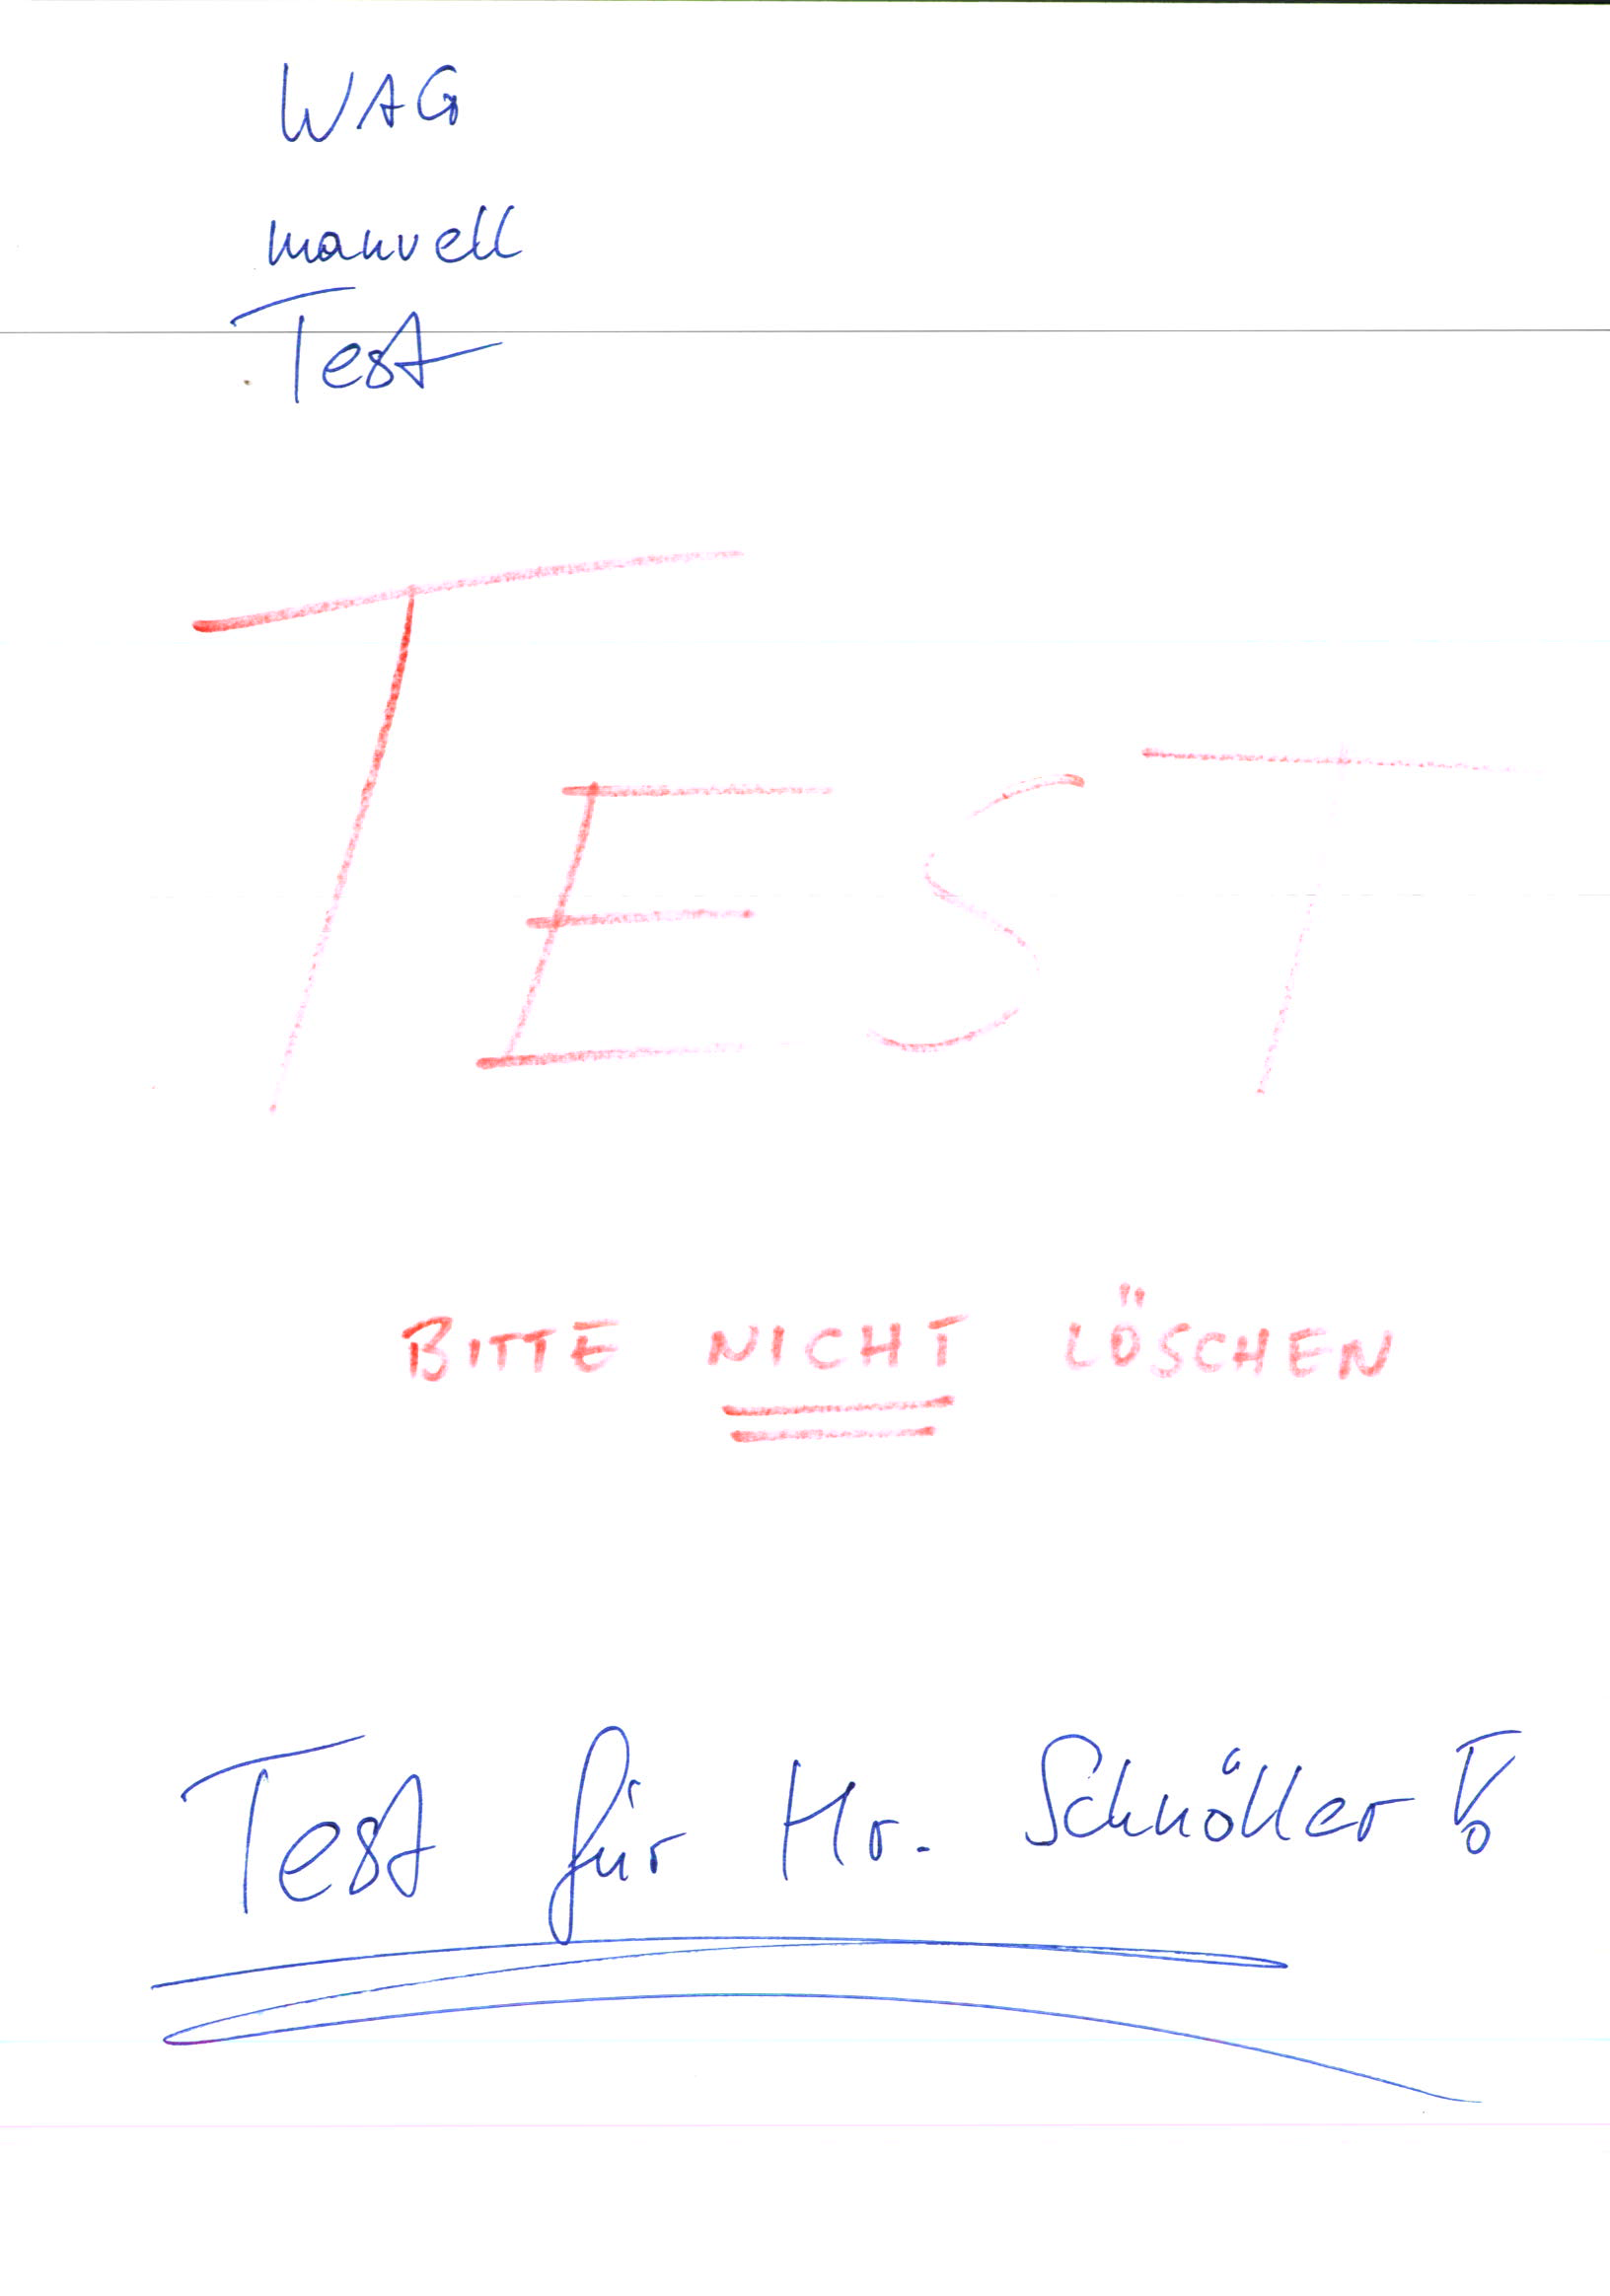 WAG
manuell
Test
TEST
BITTE NICHT LÖSCHEN
Test für Hr. Schnöller!